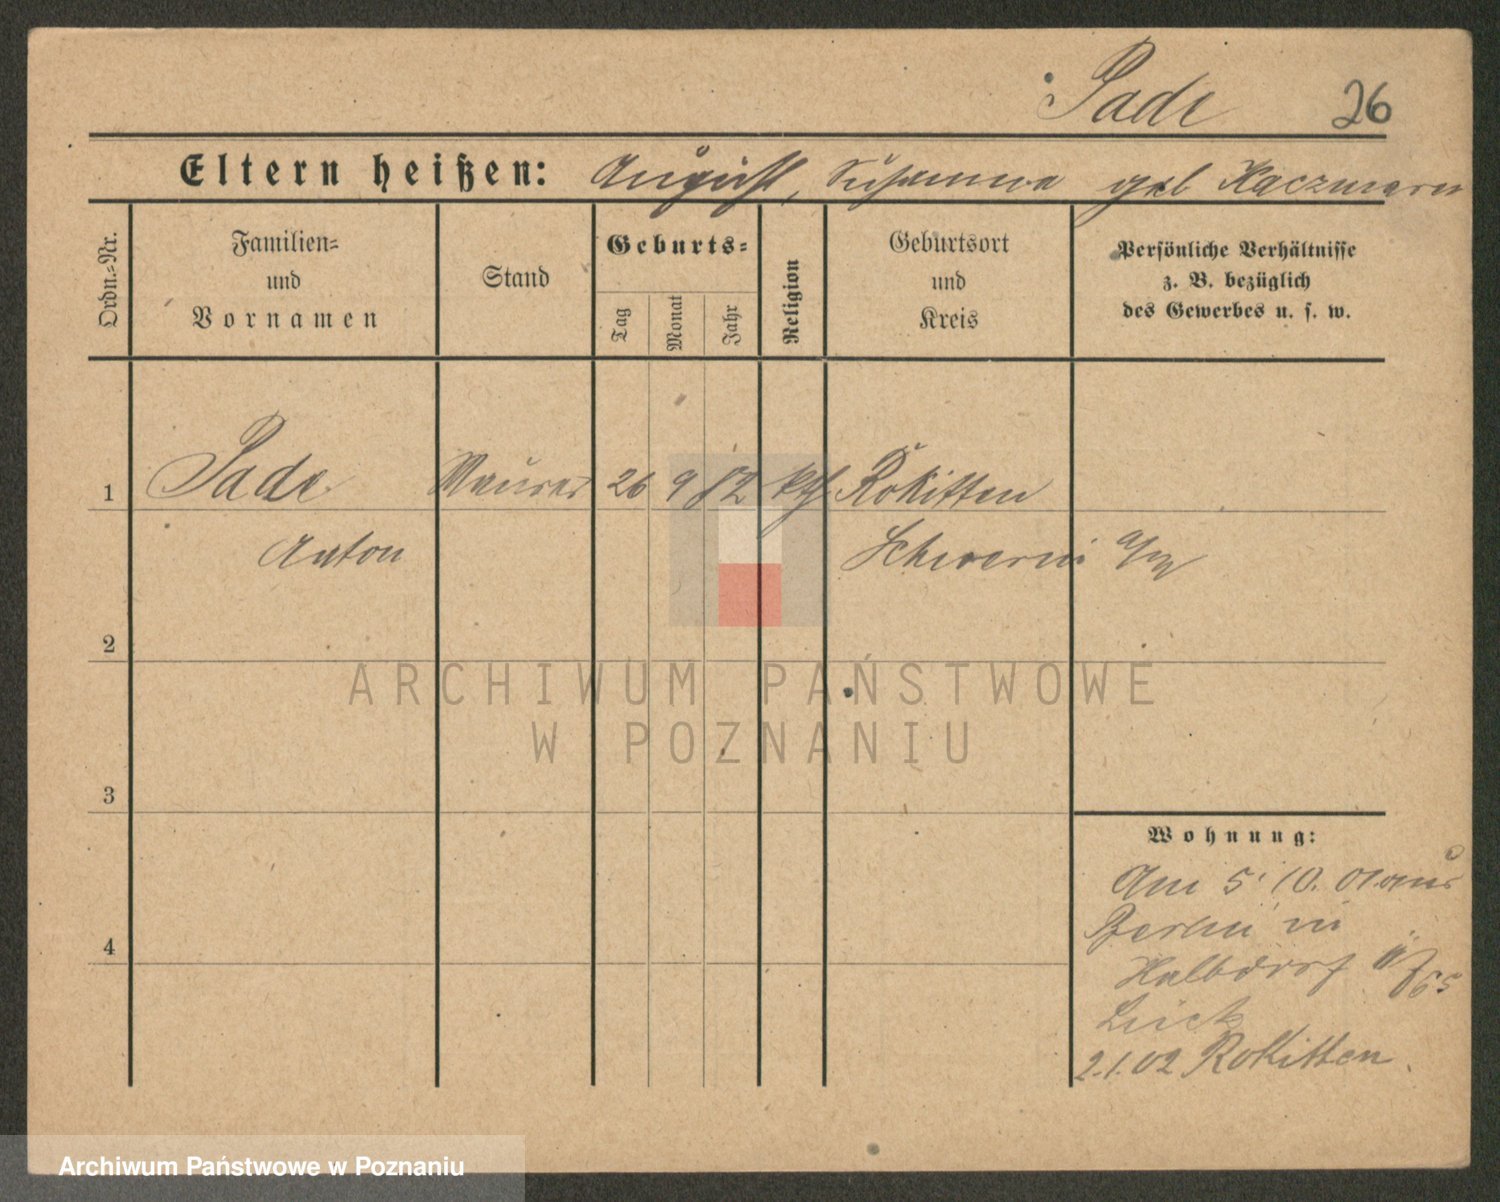 Pade 26
Eltern heißen: August, Susanna geb Kaczmarek
Ordn.=Nr.
Familien=
und
Vornamen
Stand
Geburts=
Tag
Monat
Jahr
Religion
Geburtsort
und
Kreis
Persönliche Verhältnisse
z. B. bezüglich
des Gewerbes u. s. w.
1 Pade Maurer 26 9 82 kth Rokitten
Anton Schwerin a/W
2
3
4
Wohnung:
Am 5. 10. 01 aus
Berlin in
Halbdorf
Lück
2.1.02 Rokitten.
ARCHIWUM PAŃSTWOWE
W POZNANIU
Archiwum Państwowe w Poznaniu